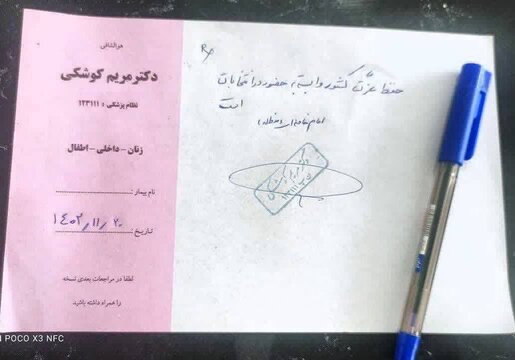 هوالشافی
دکتر مریم کوشکی
نظام پزشکی : ۱۲۳۱۱۱
زنان - داخلی - اطفال
نام بیمار:
تاریخ: ۱۴۰۲,۱۱,۲۰
لطفا در مراجعات بعدی نسخه
را همراه داشته باشید.
Rx
حفظ عزت کشور وابسته به حضور در انتخابات
است
امام خامنه‌ای (مدظله)
POCO X3 NFC